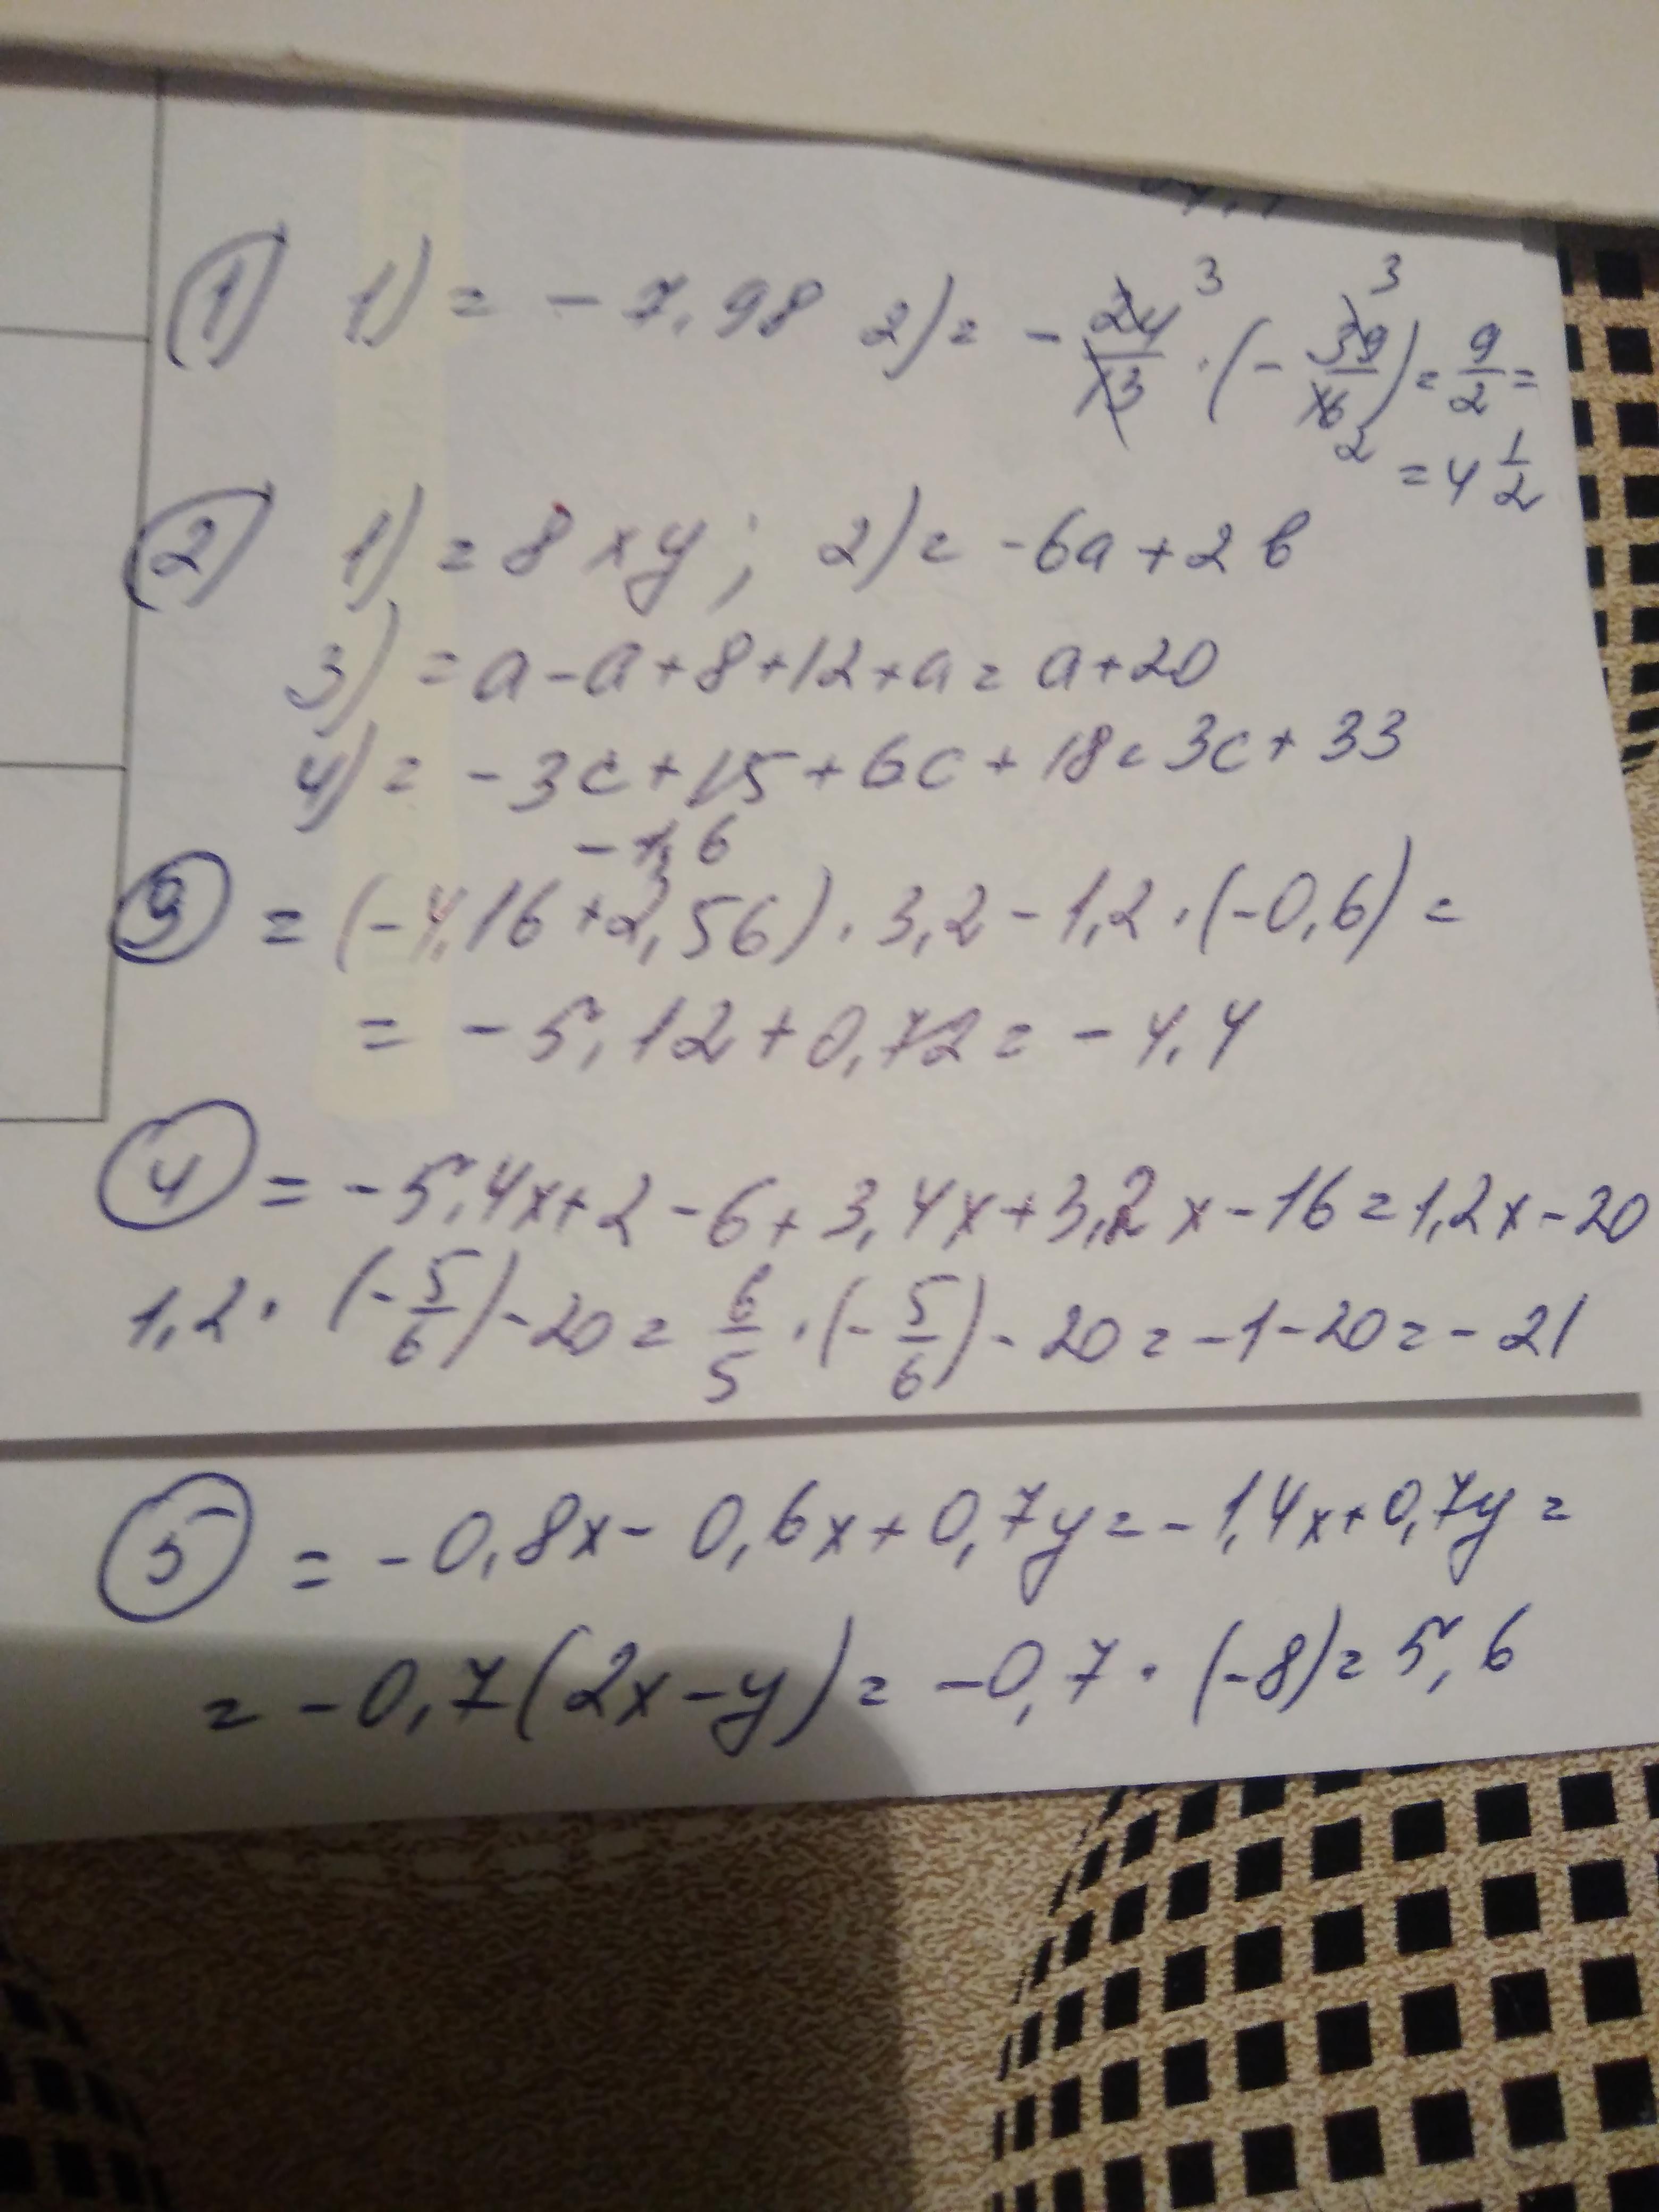 1) 1) = - 7,98 2) = - 24/13 3 · (- 39/16) 3 2 = 9/2 =
= 4 1/2
2) 1) = 8xy; 2) = -6a + 2b
3) = a - a + 8 + 12 + a = a + 20
4) = - 3c + 15 + 6c + 18 = 3c + 33
- 1,6
3 = (-4,16 + 2,56) · 3,2 - 1,2 · (-0,6) =
= - 5,12 + 0,72 = - 4,4
4 = - 5,4x + 2 - 6 + 3,4x + 3,2x - 16 = 1,2x - 20
1,2 · (- 5/6) - 20 = 6/5 · (- 5/6) - 20 = - 1 - 20 = - 21
5 = - 0,8x - 0,6x + 0,7y = - 1,4x + 0,7y =
= - 0,7(2x - y) = - 0,7 · (-8) = 5,6